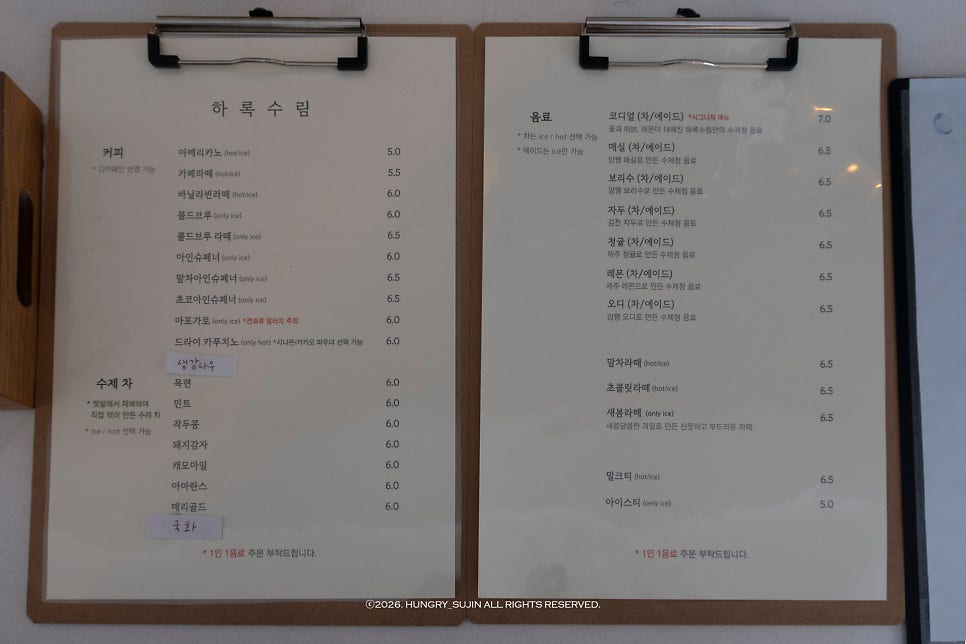 하록수림
커피
* 디카페인 변경 가능
아메리카노 (hot/ice) 5.0
카페라떼 (hot/ice) 5.5
바닐라빈라떼 (hot/ice) 6.0
콜드브루 (only ice) 6.0
콜드브루 라떼 (only ice) 6.5
아인슈페너 (only ice) 6.0
말차아인슈페너 (only ice) 6.5
초코아인슈페너 (only ice) 6.5
아포가토 (only ice) *견과류 알러지 주의 6.0
드라이 카푸치노 (only hot) *시나몬/카카오 파우더 선택 가능 6.0
생강나무
수제 차
* 텃밭에서 재배하여
직접 덖어 만든 수제 차
* ice / hot 선택 가능
목련 6.0
민트 6.0
작두콩 6.0
돼지감자 6.0
캐모마일 6.0
아마란스 6.0
메리골드 6.0
국화
* 1인 1음료 주문 부탁드립니다.
음료
* 차는 ice / hot 선택 가능
* 에이드는 ice만 가능
코디얼 (차/에이드) *시그니처 메뉴 7.0
꽃과 허브, 레몬이 더해진 하록수림만의 수제청 음료
매실 (차/에이드) 6.5
양평 매실로 만든 수제청 음료
보리수 (차/에이드) 6.5
양평 보리수로 만든 수제청 음료
자두 (차/에이드) 6.5
김천 자두로 만든 수제청 음료
청귤 (차/에이드) 6.5
제주 청귤로 만든 수제청 음료
레몬 (차/에이드) 6.5
제주 레몬으로 만든 수제청 음료
오디 (차/에이드) 6.5
양평 오디로 만든 수제청 음료
말차라떼 (hot/ice) 6.5
초콜릿라떼 (hot/ice) 6.5
새봄라떼 (only ice) 6.5
새콤달콤한 과일로 만든 산뜻하고 부드러운 라떼
밀크티 (hot/ice) 6.5
아이스티 (only ice) 5.0
* 1인 1음료 주문 부탁드립니다.
©2026. HUNGRY_SUJIN ALL RIGHTS RESERVED.